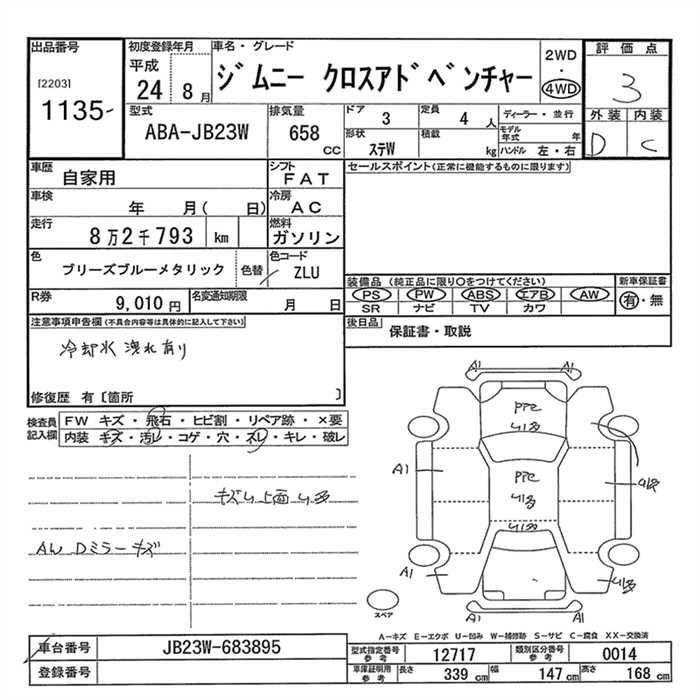 出品番号
[2203]
1135-
初度登録年月
平成
24 8月
車名・グレード
ジムニー クロスアドベンチャー
2WD
・
4WD
評価点
3
外装 内装
D C
型式
ABA-JB23W
排気量
658
CC
ドア
3
定員
4 人
ディーラー・並行
モデル
年式 年
形状
ステW
積載
kg
ハンドル 左・右
車歴
自家用
シフト
FAT
セールスポイント(正常に機能するものに限ります)
車検
年 月( 日)
冷房
AC
走行
8万2千793 km
燃料
ガソリン
色
ブリーズブルーメタリック
色替
色コード
ZLU
装備品(純正品に限り○をつけてください)
PS PW ABS エアB AW
SR ナビ TV カワ
新車保証書
有・無
R券
9,010円
名変通知期限
月 日
後日品
保証書・取説
注意事項申告欄(不具合内容等は具体的に記入して下さい)
冷却水 洩れ有り
修復歴 有〔箇所 〕
検査員
記入欄
FW キズ・飛石・ヒビ割・リペア跡・×要
内装 キズ・汚レ・コゲ・穴・スレ・キレ・破レ
キズU上面U多
AW Dミラーキズ
A1 A1
U多
A1
U多
U多
A1
U多
U多
A1 A1
スペア
A-キズ E-エクボ U-凹み W-補修跡 S-サビ C-腐食 XX-交換済
車台番号
JB23W-683895
登録番号
型式指定番号
参考
12717
類別区分番号
参考
0014
車庫証明用
参考
長さ
339 cm
幅
147 cm
高さ
168 cm